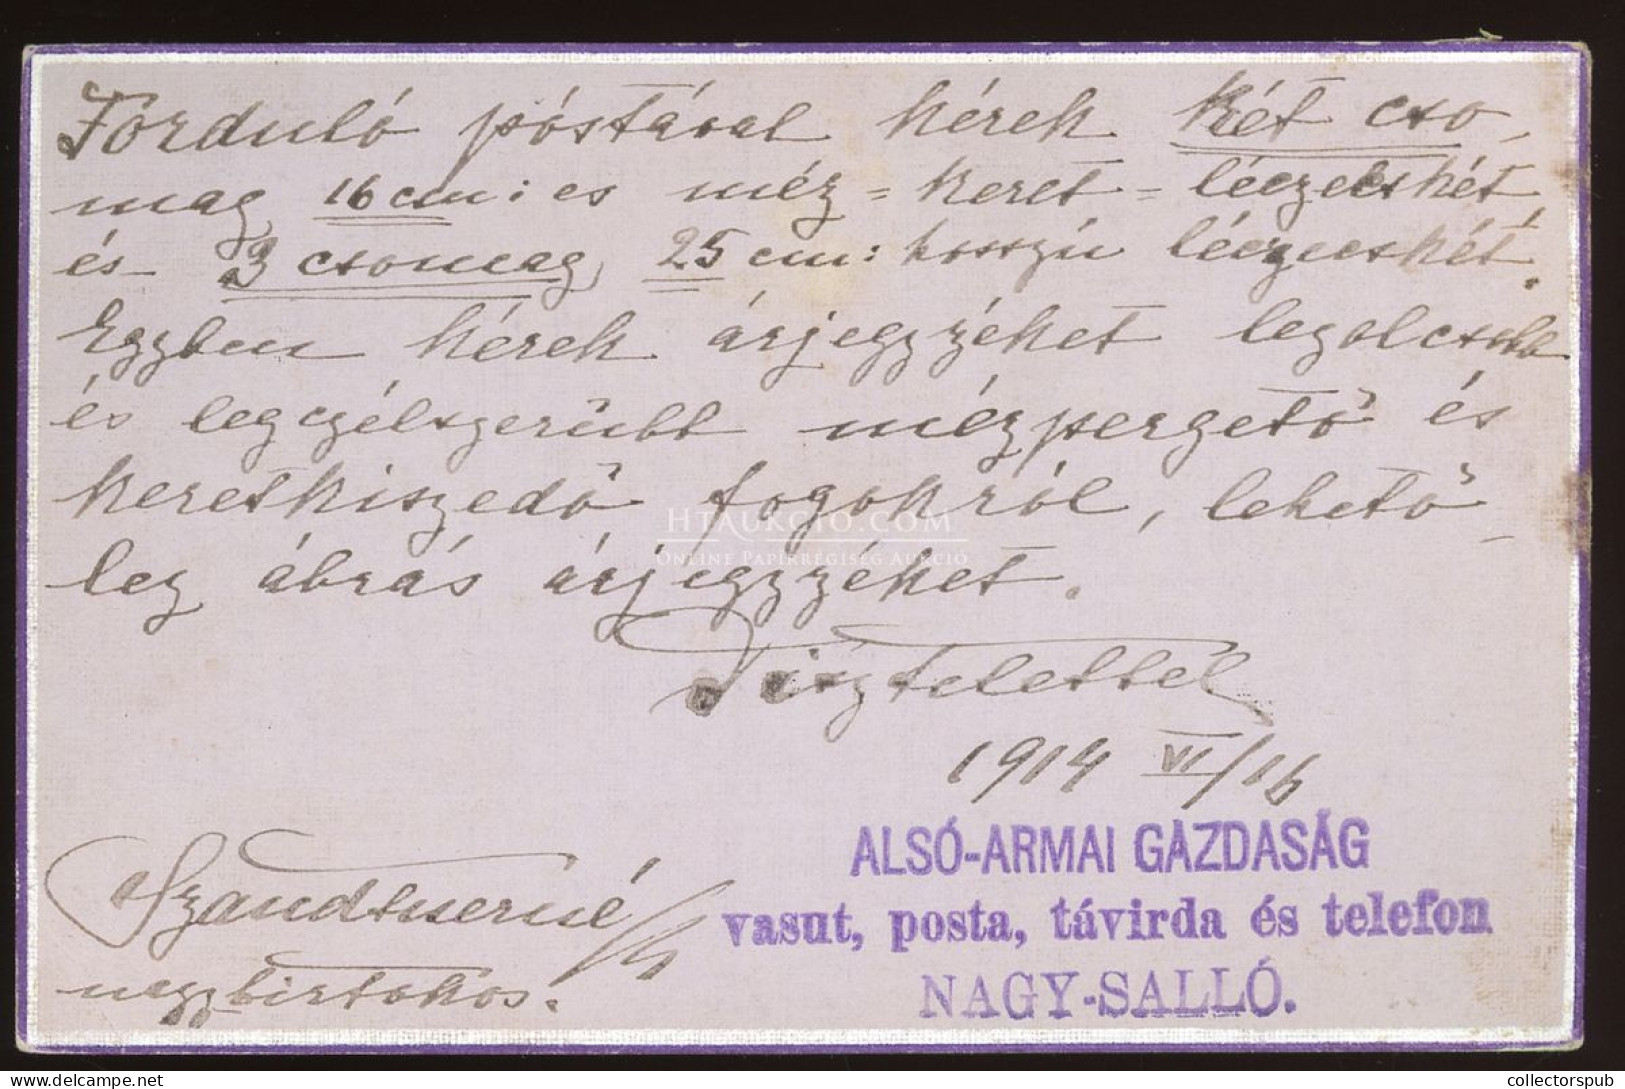 Forduló póstával kérek két cso,
mag 16 cm: es méz = keret = léczecskét,
és 3 csomag, 25 cm: hosszú léczecskét.
Egyben kérek árjegyzéket legolcsobb
és legczélszerűbb mézpergető és
keretkiszedő fogokról, lehető_
leg ábrás árjegyzéket.
HTAUKCIO.COM
ONLINE PAPÍRRÉGISÉG AUKCIÓ
Tisztelettel
1914 VI/16
ALSÓ-ARMAI GAZDASÁG
vasut, posta, távirda és telefon
NAGY-SALLÓ.
nagybirtokos.
collectorspub